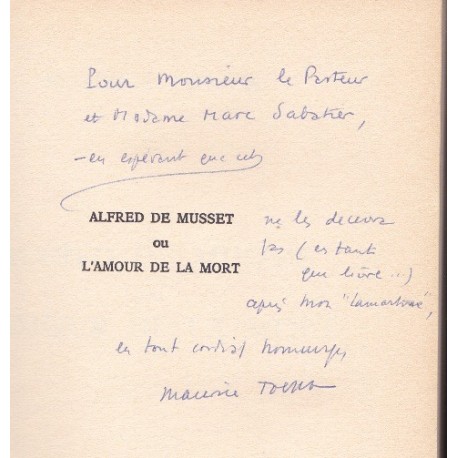 Pour Monsieur le Pasteur
et Madame Marc Sabatier,
- en espérant que cet
ALFRED DE MUSSET
ou
L'AMOUR DE LA MORT
ne les decevra
pas (en tant
que livre...)
après mon "Lamartine",
en tout cordial hommage,
Maurice Toesca